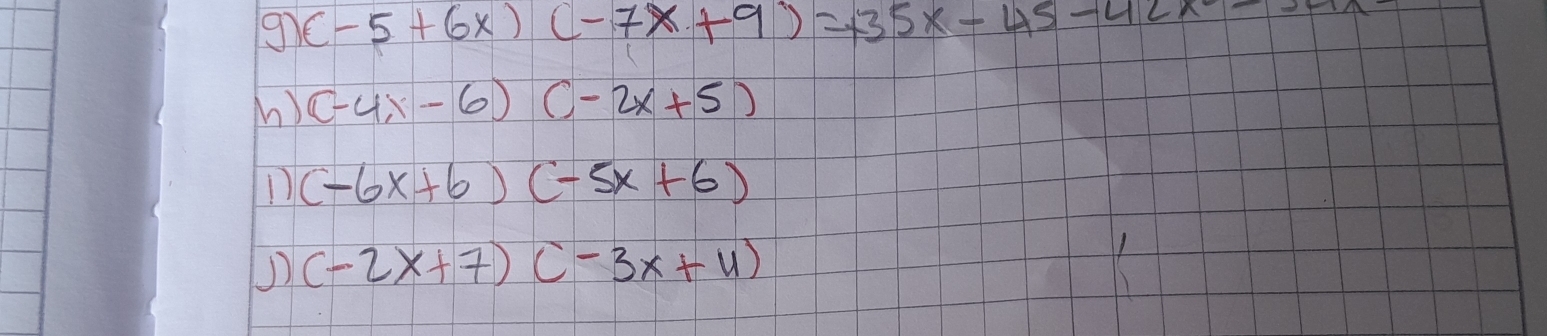 g) (-5+6x) (-7x+9) = +35x-45-42x
h) (-4x-6) (-2x+5)
i) (-6x+6) (-5x+6)
j) (-2x+7) (-3x+4)